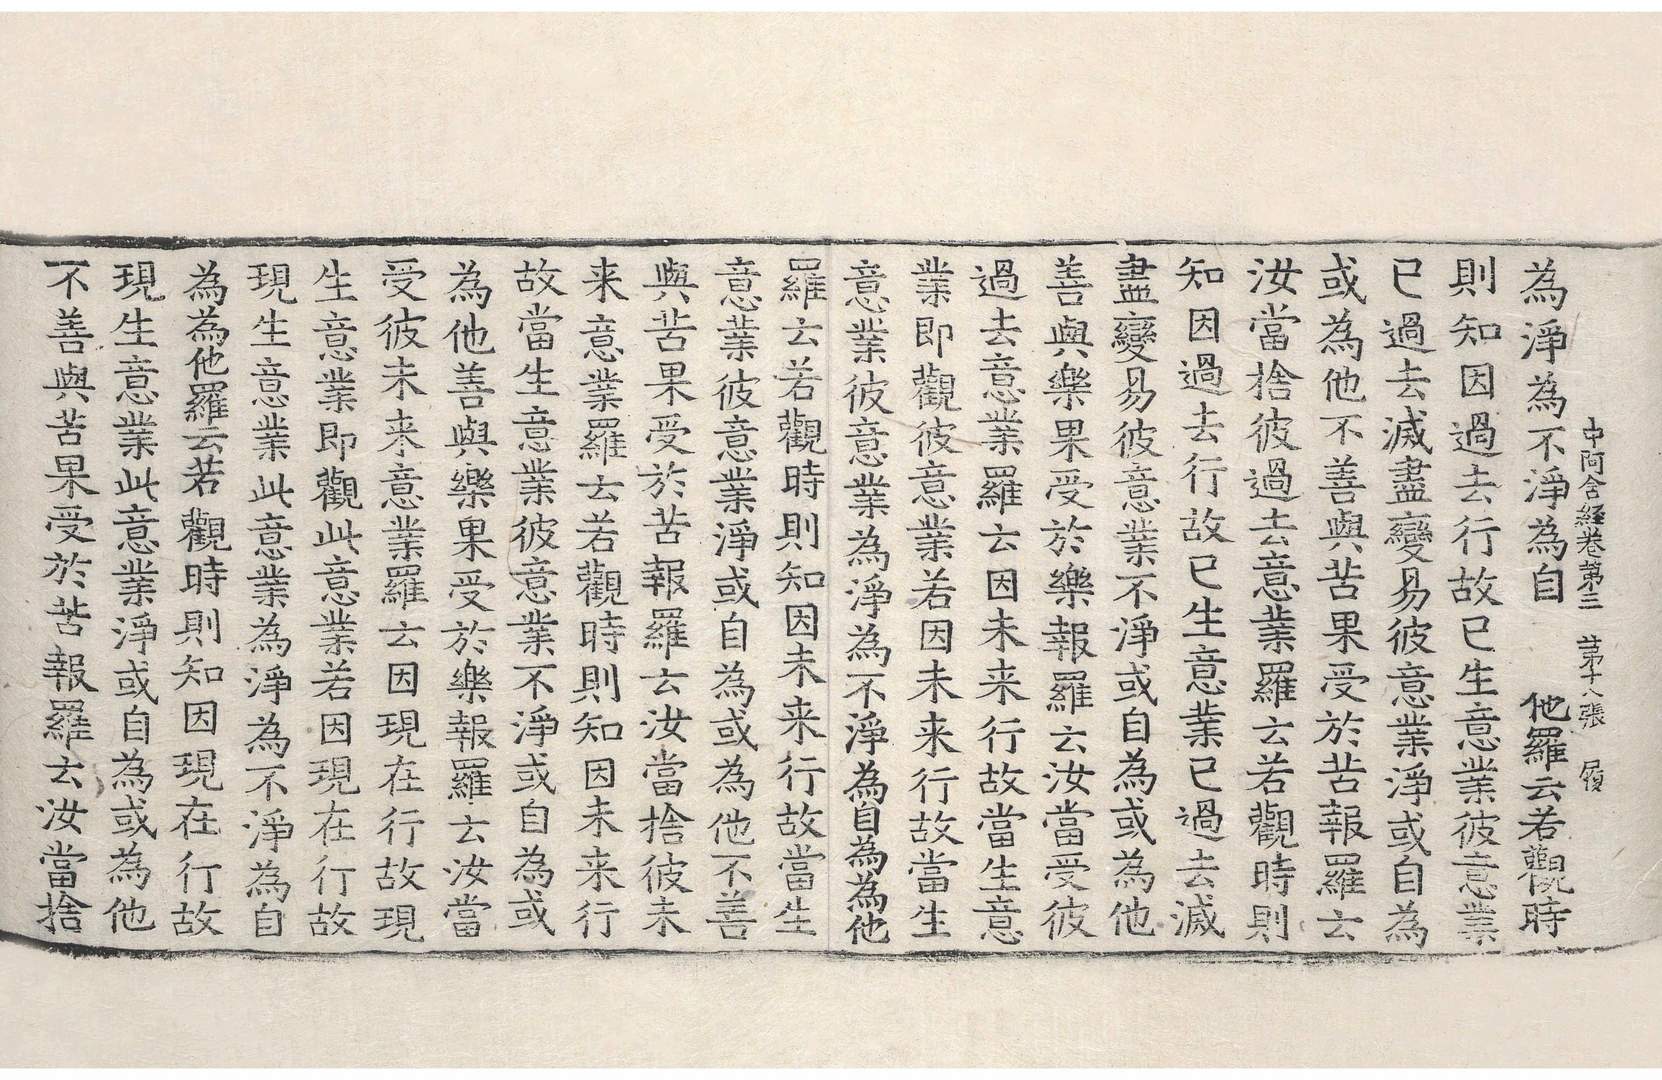 中阿含経卷第三　第十八張　履
為淨為不淨為自　他羅云若觀時
則知因過去行故已生意業彼意業
已過去滅盡變易彼意業淨或自為
或為他不善與苦果受於苦報羅云
汝當捨彼過去意業羅云若觀時則
知因過去行故已生意業已過去滅
盡變易彼意業不淨或自為或為他
善與樂果受於樂報羅云汝當受彼
過去意業羅云因未来行故當生意
業即觀彼意業若因未来行故當生
意業彼意業為淨為不淨為自為為他
羅云若觀時則知因未来行故當生
意業彼意業淨或自為或為他不善
與苦果受於苦報羅云汝當捨彼未
来意業羅云若觀時則知因未来行
故當生意業彼意業不淨或自為或
為他善與樂果受於樂報羅云汝當
受彼未来意業羅云因現在行故現
生意業即觀此意業若因現在行故
現生意業此意業為淨為不淨為自
為為他羅云若觀時則知因現在行故
現生意業此意業淨或自為或為他
不善與苦果受於苦報羅云汝當捨